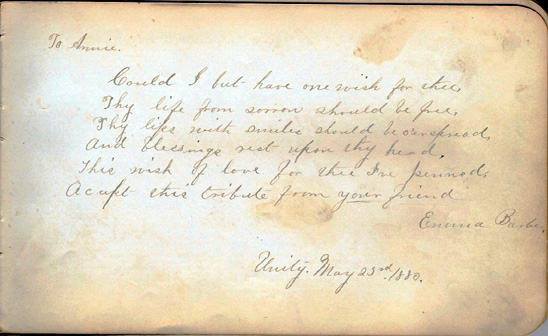 To Annie.
Could I but have one wish for thee,
Thy life from sorrow should be free,
Thy lips with smiles should be overspread,
And blessings rest upon thy head,
This wish of love for thee I've penned,
Accept this tribute from your friend
Emma Barber.
Unity. May 23rd, 1880.